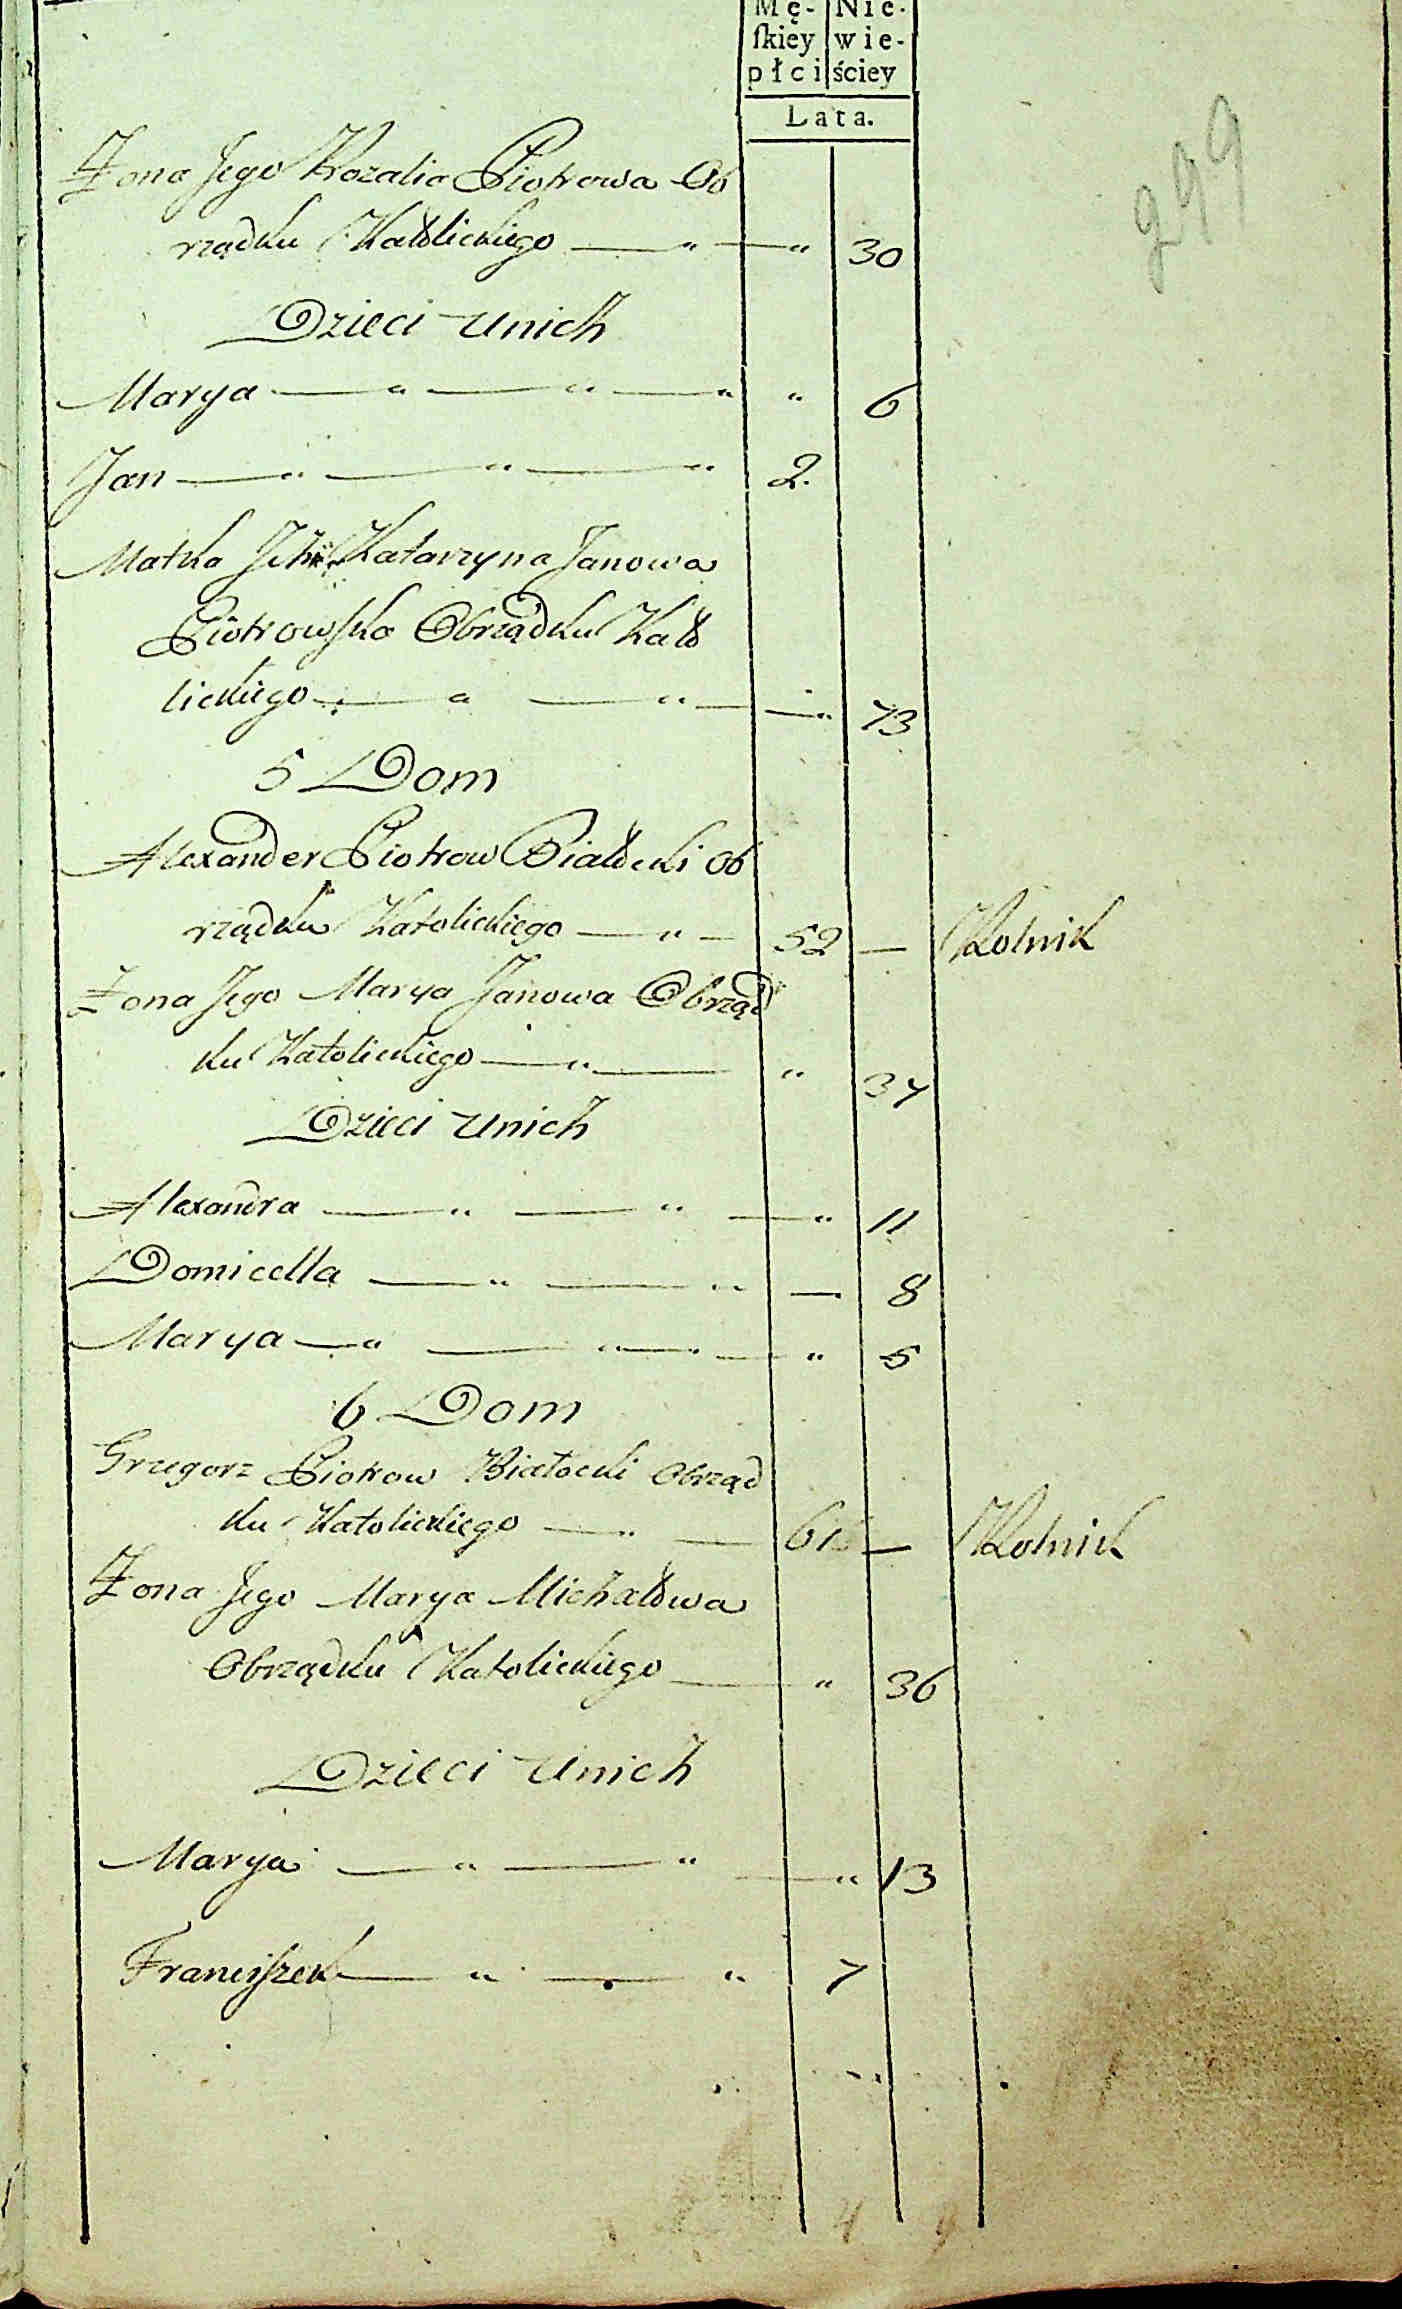 Mę- Nie-
ſkiey wie-
płci ściey
Lata.
299
Żona Jego Rozalia Piotrowa Ob
rządku Katolickiego — " — " 30
Dzieci u nich
Marya — " — " — " " 6
Jan — " — " — " 2.
Matka Ich Katarzyna Janowa
Piotrowska Obrządku Kato
lickiego — " — " — " 73
5 Dom
Alexander Piotrow Białocki Ob
rządku Katolickiego — " — 52 — Rolnik
Żona Jego Marya Janowa Obrząd
ku Katolickiego — " — " 37
Dzieci u nich
Alexandra — " — " — " 11
Domicella — " — " — 8
Marya — " — " — " 5
6 Dom
Grzegorz Piotrow Białocki Obrząd
ku Katolickiego — " — 61 — Rolnik
Żona Jego Marya Michałowa
Obrządku Katolickiego — " 36
Dzieci u nich
Marya — " — " — " 13
Franciszek — " — " 7
4 9